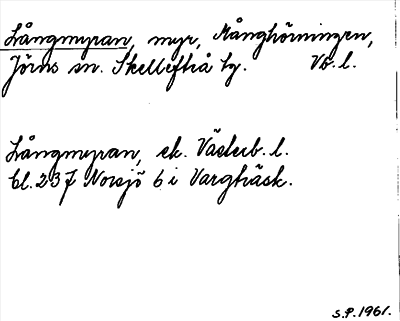 Långmyran, myr, Månghörningen,
Jörns sn. Skellefteå tg. Vb. l.
Långmyran, ek. Västerb. l.
bl. 237 Norsjö 6 i Vargträsk.
S.P. 1961.